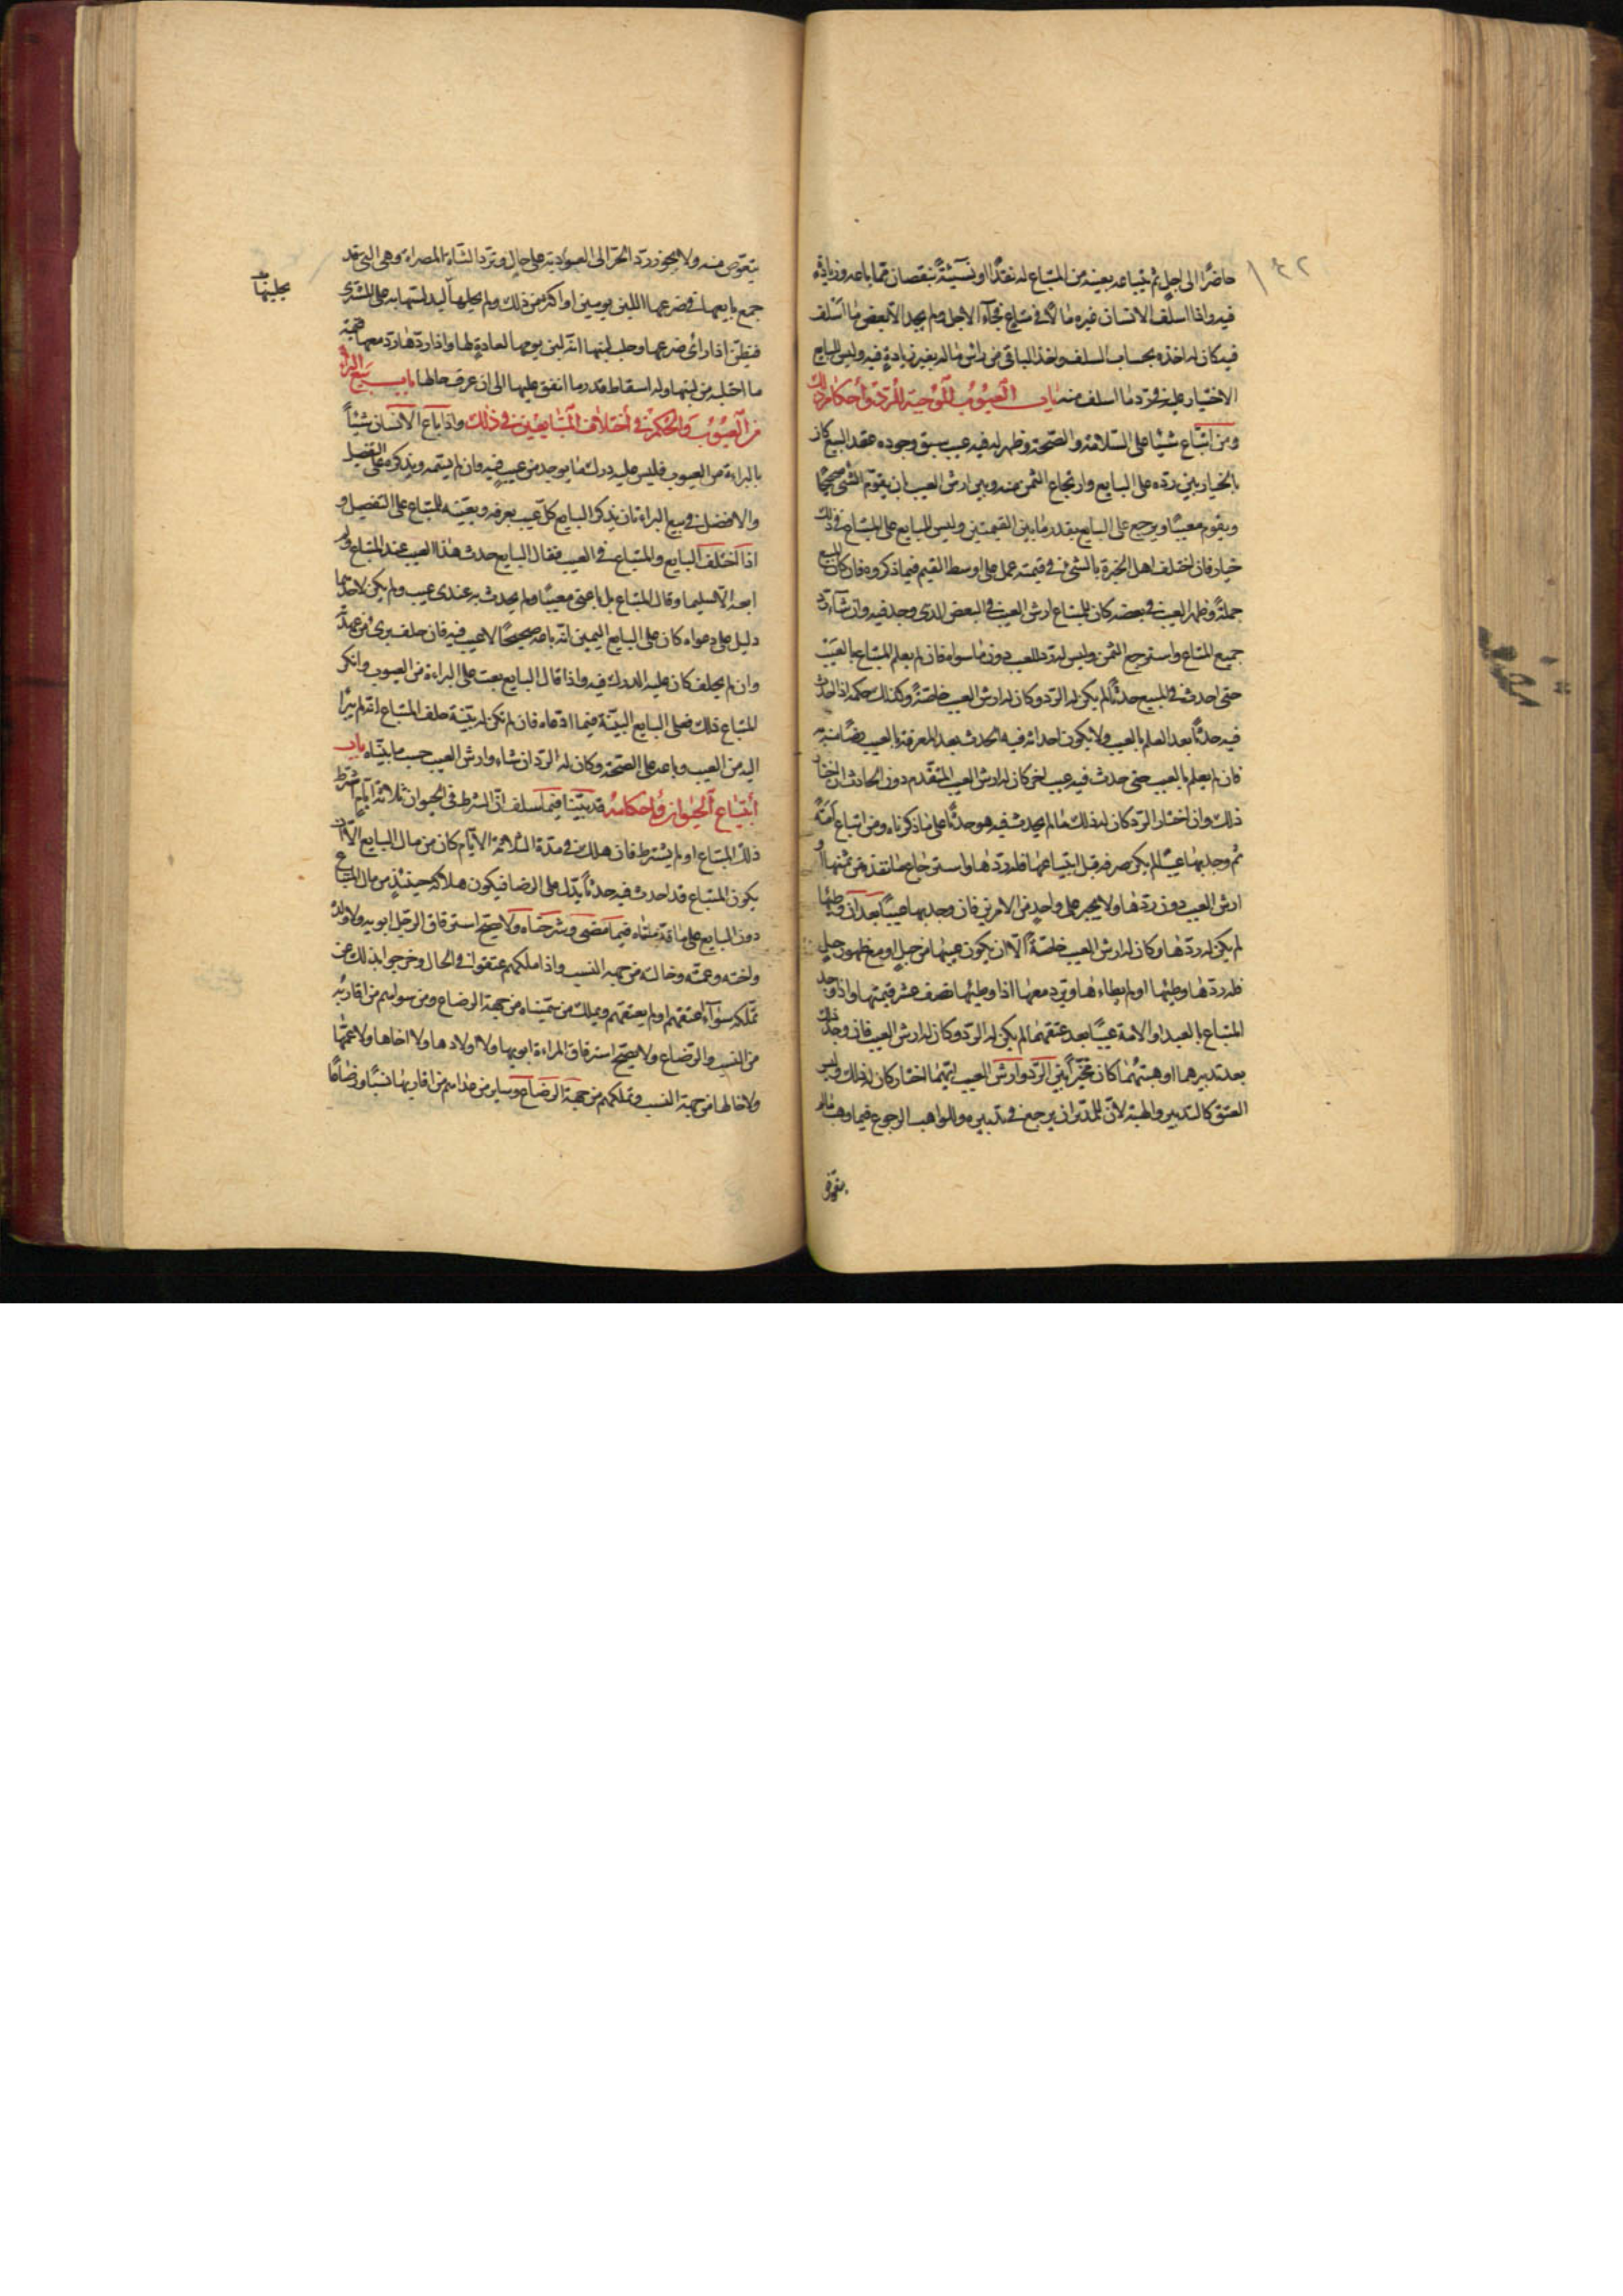 ١٤٢
حاضرًا الى اجل ثم يبتاعه بعينه من المبتاع له نقدًا او نسيئةً بنقصان مما باعه وزيادة
فيه واذا اسلف الانسان غيره مالًا في متاع فجاء الاجل ولم يجد الا بعض ما اسلف
فيه كان له اخذه بحساب السلف وياخذ الباقي من راس ماله بغير زيادة فيه وليس للبايع
الاختيار عليه في رد ما اسلف منه باب العيوب الموجبة للرد واحكام ذلك
ومن ابتاع شيئا على السلامة والصحة وظهر له فيه عيب سبق وجوده عقد البيع كان
بالخيار بين رده على البايع وارتجاع الثمن منه وبين ارش العيب بان يقوم الشئ صحيحًا
ويقوم معيبًا ويرجع على البايع بقدر ما بين القيمتين وليس للبايع على المبتاع في ذلك
خيار فان اختلف اهل الخبرة بالشئ في قيمته عمل على اوسط القيم فيما ذكروه فان كان المبيع
جملةً وظهر العيب في بعضه كان للمبتاع ارش العيب في البعض الذي وجد فيه وان شاء رد
جميع المتاع واسترجع الثمن وليس له رد المعيب دون ما سواه فان لم يعلم المبتاع بالعيب
حتى احدث في المبيع حدثًا لم يكن له الرد وكان له ارش العيب خاصة وكذلك حكمه اذا احدث
فيه حدثًا بعد العلم بالعيب ولا يكون احداثه فيه الحدث بعد المعرفة بالعيب رضًا منه به
فان لم يعلم بالعيب حتى حدث فيه عيب اخر كان له ارش العيب المتقدم دون الحادث ان اختار
ذلك وان اختار الرد كان له ذلك ما لم يحدث فيه هو حدثًا على ما ذكرناه ومن ابتاع امةً
ثم وجد بها عيبًا لم يكن عرفه قبل ابتياعها فله ردها واسترجاع ما نقد من ثمنها او
ارش العيب دون ردها ولا يجبر على واحد من الامرين فان وجد بها عيبًا بعد ان وطئها
لم يكن له ردها وكان له ارش العيب خاصة الا ان يكون عيبها من حبل او مع ظهور حبل
فله ردها وطئها او لم يطاءها ويرد معها اذا وطئها نصف عشر قيمتها واذا وجد
المبتاع بالعبد او الامة عيبًا بعد عتقهما لم يكن له الرد وكان له ارش العيب فان وجد ذلك
بعد تدبيرهما او هبتهما كان مخيرًا بين الرد وارش العيب ايهما اختار كان له ذلك وليس
العتق كالتدبير والهبة لان للمدبر ان يرجع في تدبيره وللواهب الرجوع فيما وهب ما لم
يتعوض
يتعوض منه ولا يجوز رد الحر الى العبودية على حال وترد الشاة المصراة وهي التي قد
جمع بايعها في ضرعها اللبن يومين او اكثر من ذلك ولم يحلبها ليدلسها به على المشتري
فيظن اذا راى ضرعها وحلب لبنها انه لبن يومها لعادة لها واذا ردها رد معها قيمة
ما احتلبه من لبنها وله اسقاط قدر ما انفق عليها الى ان عرف حالها باب بيع البراءة
من العيوب والحكم في اختلاف المتبايعين في ذلك واذا باع الانسان شيئًا
بالبراءة من العيوب فليس عليه درك ما يوجد من عيب فيه وان لم يسمه ويذكره على التفصيل
والافضل في بيع البراءة ان يذكر البايع كل عيب يعرفه ويعينه للمبتاع على التفصيل و
اذا اختلف البايع والمبتاع في العيب فقال البايع حدث هذا العيب عند المبتاع ولم
ابعه الا سليما وقال المبتاع بل باعني معيبًا ولم يحدث به عندي عيب ولم يكن لاحدهما
دليل على دعواه كان على البايع اليمين انه باعه صحيحًا لا عيب فيه فان حلف برئ من عهدته
وان لم يحلف كان عليه الدرك فيه واذا قال البايع بعت على البراءة من العيوب وانكر
المبتاع ذلك فعلى البايع البينة فيما ادعاه فان لم تكن له بينة حلف المبتاع انه لم يبرا
اليه من العيب وباعه على الصحة وكان له الرد ان شاء وارش العيب حسب ما بيناه باب
ابتياع الحيوان واحكامه قد بينا فيما سلف ان الشرط في الحيوان ثلاثة ايام شرط
ذلك المبتاع او لم يشترط فان هلك في مدة الثلاثة الايام كان من مال البايع الا ان
يكون المبتاع قد احدث فيه حدثًا يدل على الرضا فيكون هلاكه حينئذ من مال المبتاع
دون البايع على ما قدمناه فيما مضى وشرحناه ولا يصح استرقاق الرجل ابويه ولا ولده
واخته وعمته وخالته من جهة النسب واذا ملكهم عتقوا في الحال وخرجوا بذلك عن
تملكه سواء اعتقهم او لم يعتقهم ويملك من سميناه من جهة الرضاع ومن سواهم من اقاربه
من النسب والرضاع ولا يصح استرقاق المراءة ابويها ولا اولادها ولا اخاها ولا عمها
ولا خالها من جهة النسب وتملكهم من جهة الرضاع وساير من عداهم من اقاربها نسبًا ورضاعًا